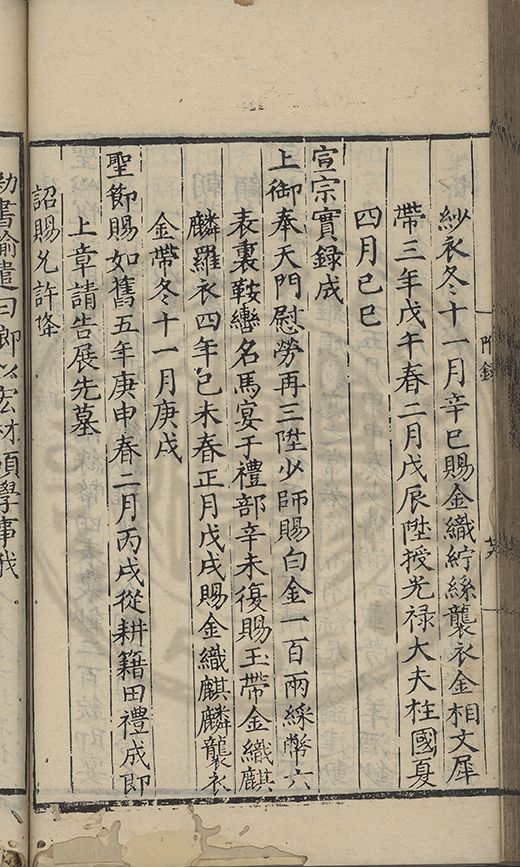 紗衣冬十一月辛巳賜金織紵絲襲衣金相文犀
帶三年戊午春二月戊辰陞授光祿大夫柱國夏
四月己巳
宣宗實録成
上御奉天門慰勞再三陞少師賜白金一百兩綵幣六
表裏鞍轡名馬宴于禮部辛未復賜玉帶金織麒
麟羅衣四年己未春正月戊戌賜金織麒麟襲衣
金帶冬十一月庚戌
聖節賜如舊五年庚申春二月丙戌從耕籍田禮成即
上章請告展先墓
詔賜允許降
勑書諭遣曰卿以宏材碩學事我
附録